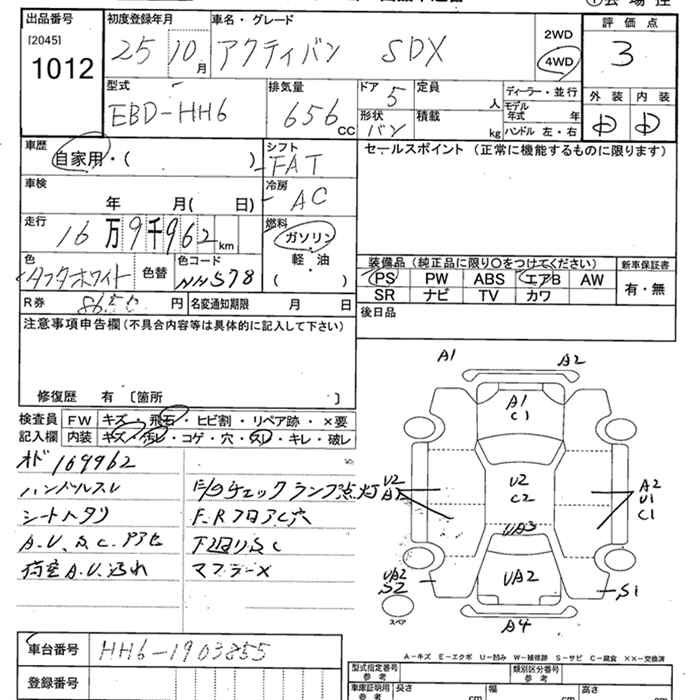 出品番号 初度登録年月 車名・グレード 2WD 評価点
[2045] 25 10月 アクティバン SDX 4WD 3
1012 外装 内装
型式 排気量 ドア 定員 ディーラー・並行
EBD-HH6 656cc 5 人 モデル年式 年
形状 積載
バン kg ハンドル 左・右 D D
車歴 シフト セールスポイント(正常に機能するものに限ります)
自家用・( ) FAT
車検 冷房
年 月( 日) AC
走行 燃料
16万9千962km ガソリン
色 色コード 軽・油
タフタホワイト 色替 NH578 ( )
装備品(純正品に限り○をつけてください) 新車保証書
PS PW ABS エアB AW 有・無
SR ナビ TV カワ
R券 8650円 名変通知期限 月 日
後日品
注意事項申告欄(不具合内容等は具体的に記入して下さい)
修復歴 有 〔箇所 〕
検査員 FW キズ・飛石・ヒビ割・リペア跡・×要
記入欄 内装 キズ・汚レ・コゲ・穴・スレ・キレ・破レ
オド 169962
ハンドルスレ チェックランプ点灯
シートヘタリ F.R
A.U.S.C. 下回りS.C
荷室A.U.汚れ マフラーX
A1 A2
A1
C1
U2
U2
C2
A2
U1
C1
UA3
UA2
UA2
S2
S1
スペア
A4
A-キズ E-エクボ U-凹み W-補修跡 S-サビ C-腐食 ××-交換済
車台番号 HH6-1903855
登録番号
型式指定番号 参考 類別区分番号 参考
車庫証明用 参考 長さ cm 幅 cm 高さ cm